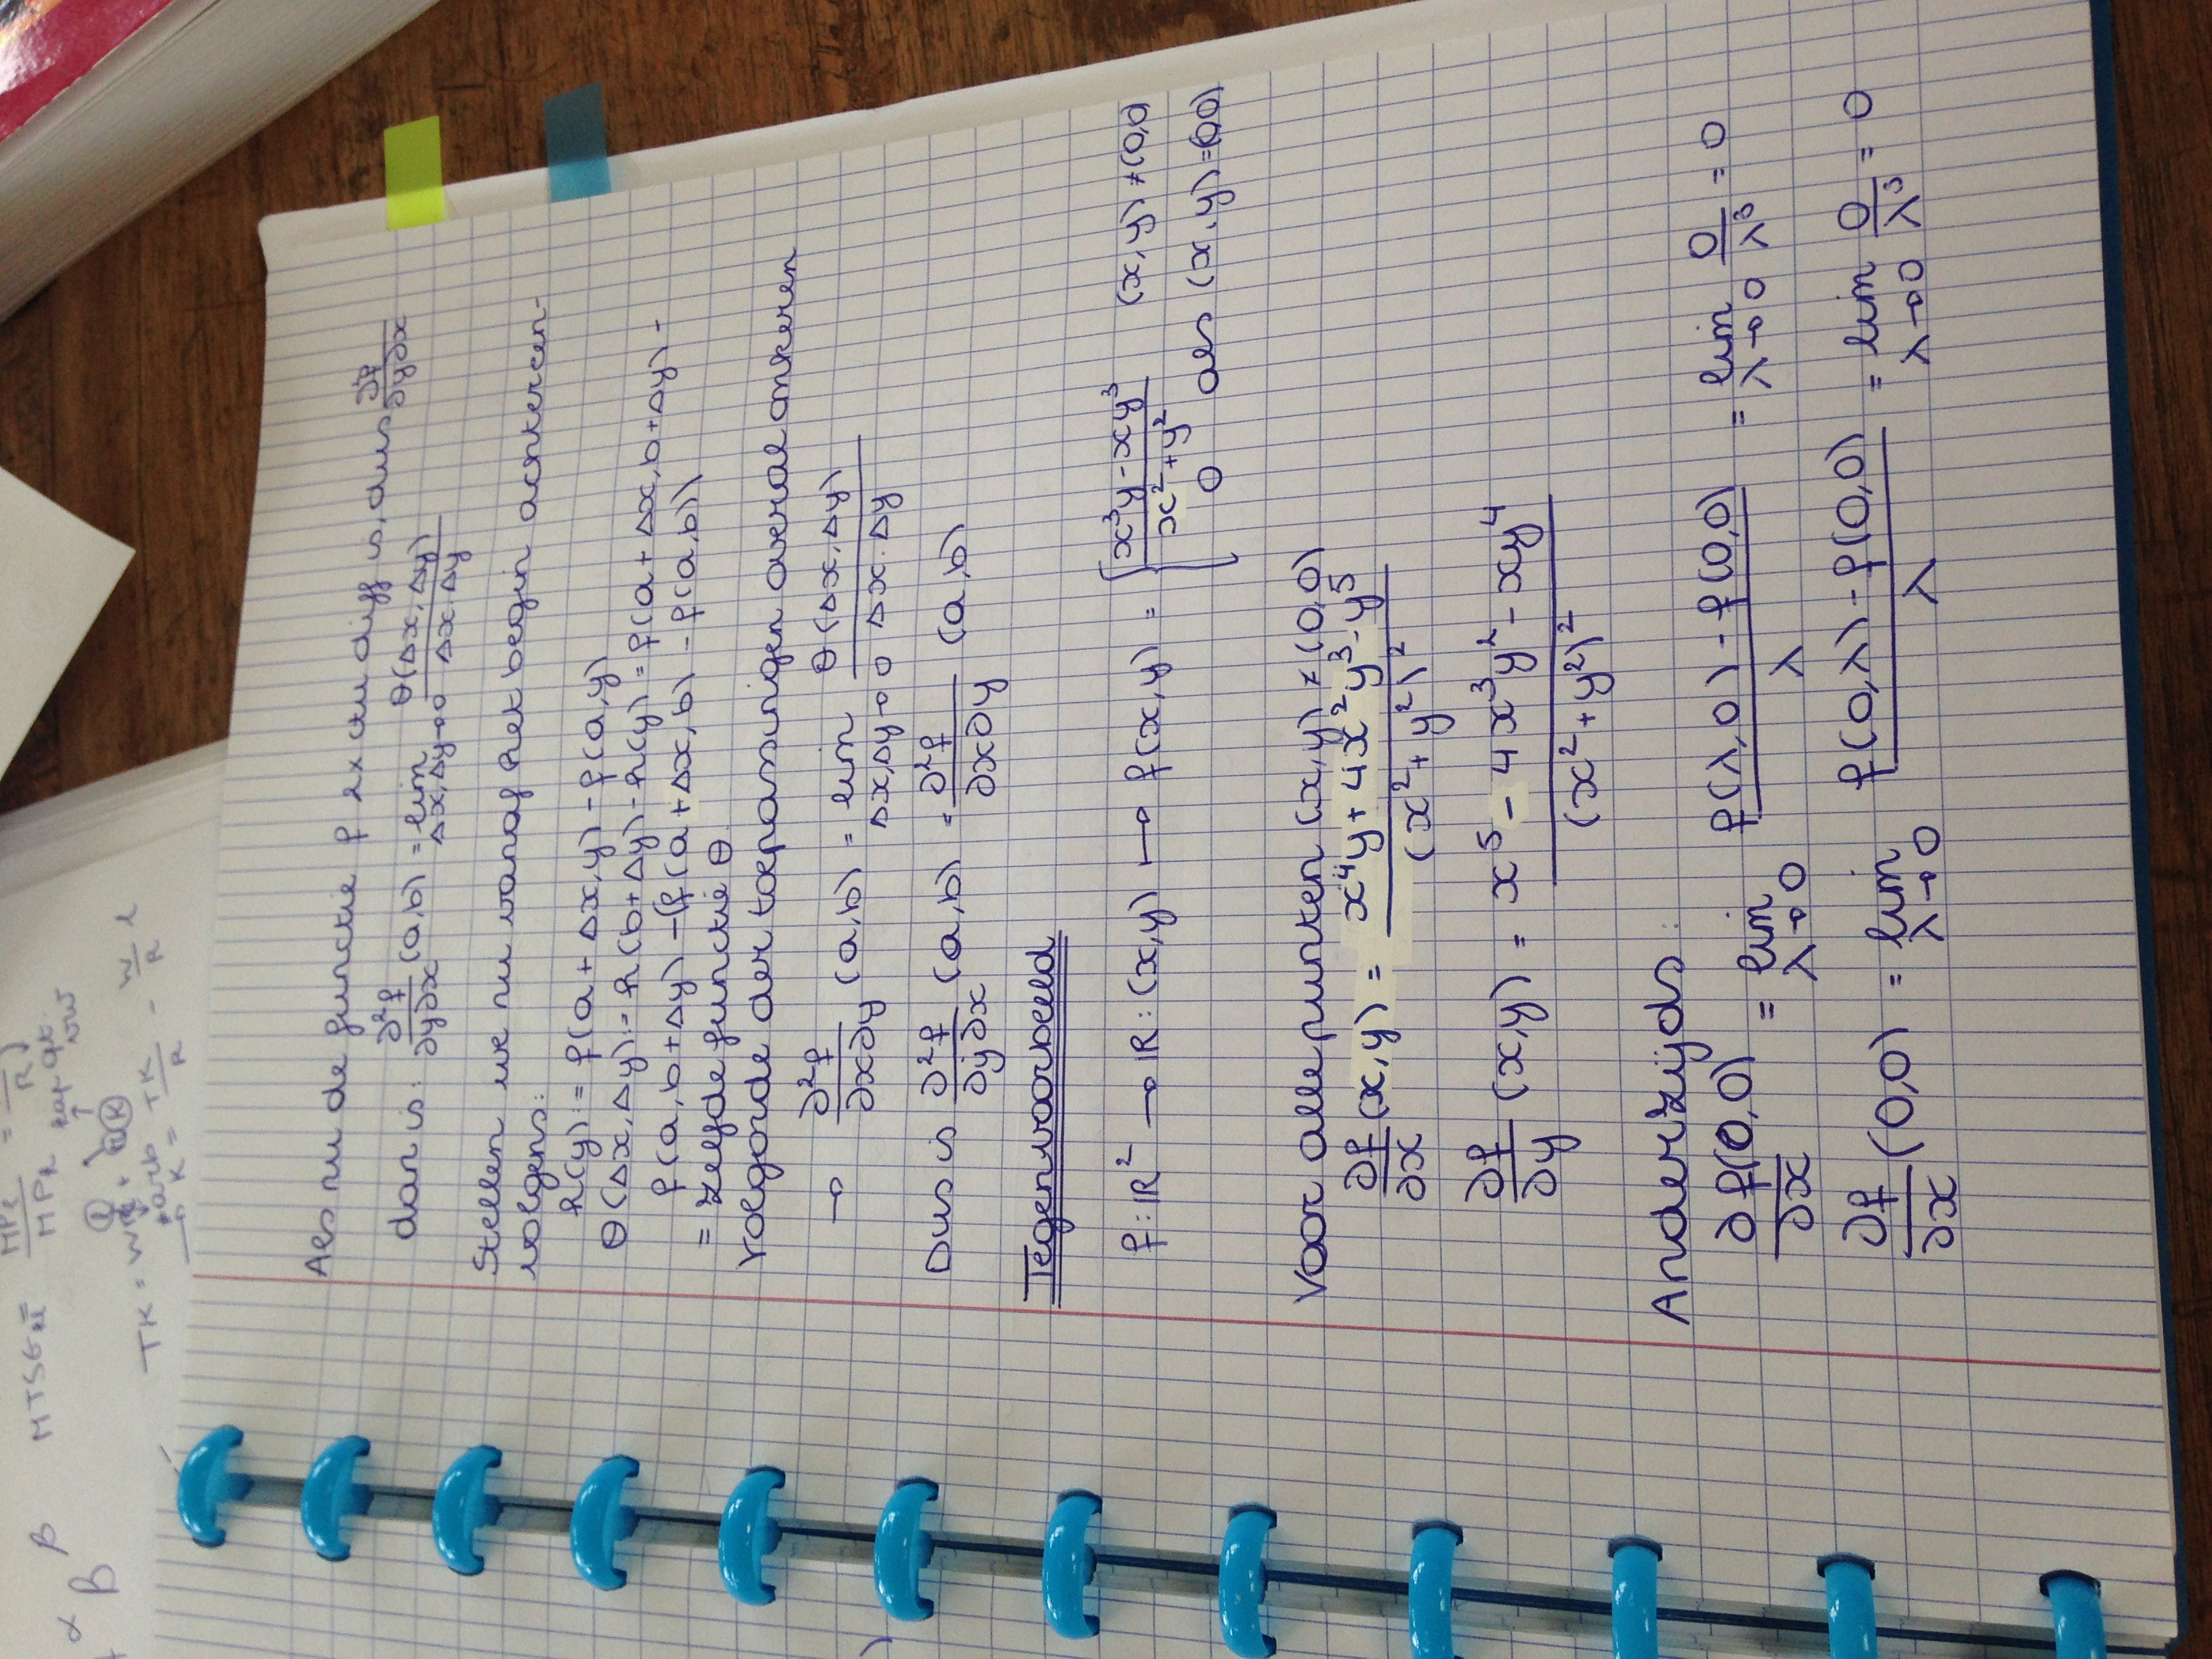 Als nu de functie f 2x cu diff is, dus ∂f/∂y∂x
dan is: ∂²f/∂y∂x (a,b) = lim Δx,Δy→0 θ(Δx,Δy)/Δx·Δy
Stellen we nu vanaf het begin achtereen-
volgens:
h(y) := f(a+Δx,y) - f(a,y)
θ(Δx,Δy) := h(b+Δy) - h(y) = f(a+Δx,b+Δy) -
f(a,b+Δy) - (f(a+Δx,b) - f(a,b))
= zelfde functie θ
Volgorde der toepassingen overal omkeren
→ ∂²f/∂x∂y (a,b) = lim Δx,Δy→0 θ(Δx,Δy)/Δx·Δy
Dus is ∂²f/∂y∂x (a,b) = ∂²f/∂x∂y (a,b)
Tegenvoorbeeld
f: ℝ² → ℝ: (x,y) ↦ f(x,y) = { x³y - xy³/x² + y² (x,y) ≠ (0,0)
0 als (x,y) = (0,0)
Voor alle punten (x,y) ≠ (0,0)
∂f/∂x (x,y) = x⁴y + 4x²y³ - y⁵/(x² + y²)²
∂f/∂y (x,y) = x⁵ - 4x³y² - xy⁴/(x² + y²)²
Anderzijds
∂f(0,0)/∂x = lim λ→0 f(λ,0) - f(0,0)/λ = lim λ→0 0/λ³ = 0
∂f/∂x (0,0) = lim λ→0 f(0,λ) - f(0,0)/λ = lim λ→0 0/λ³ = 0